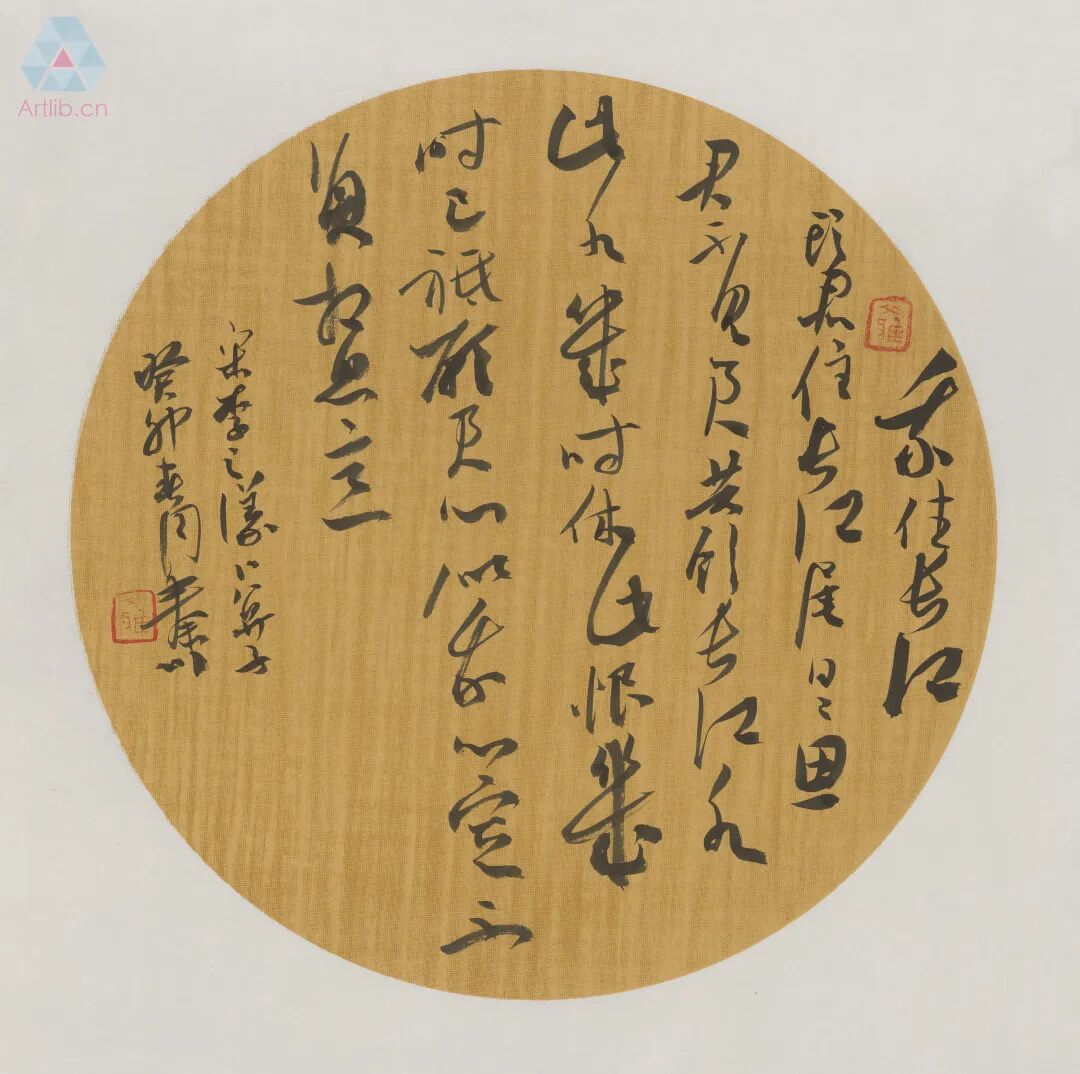 我住长江
頭君住长江尾日日思
君不见君共飲长江水
此水幾时休此恨幾
时已祗願君心似我心定不
負相思意
宋李之儀卜算子
癸卯春
Artlib.cn